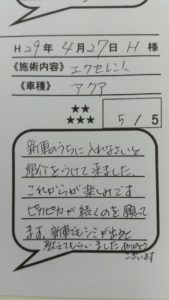 H29年4月27日 H 様
《施術内容》エクセレント
《車種》アクア
★★
★★★
5/5
新車のうちに入れなさいと
紹介をうけて来ました。
これからが楽しみです
ピカピカが続くのを願って
ます。新車でもシミが出ると
教えてもらいました。ありがとう
ございます